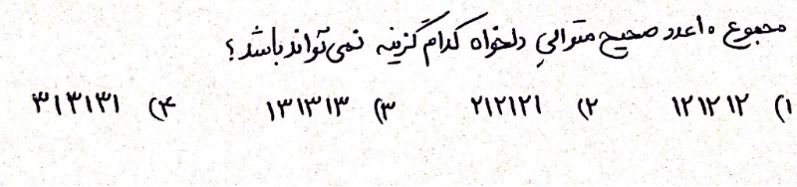 مجموع ۱۰ عدد صحیح متوالیِ دلخواه کدام گزینه نمی‌تواند باشد؟
۱) ۱۲۱۲۱۲ ۲) ۲۱۲۱۲۱ ۳) ۱۳۱۳۱۳ ۴) ۳۱۳۱۳۱